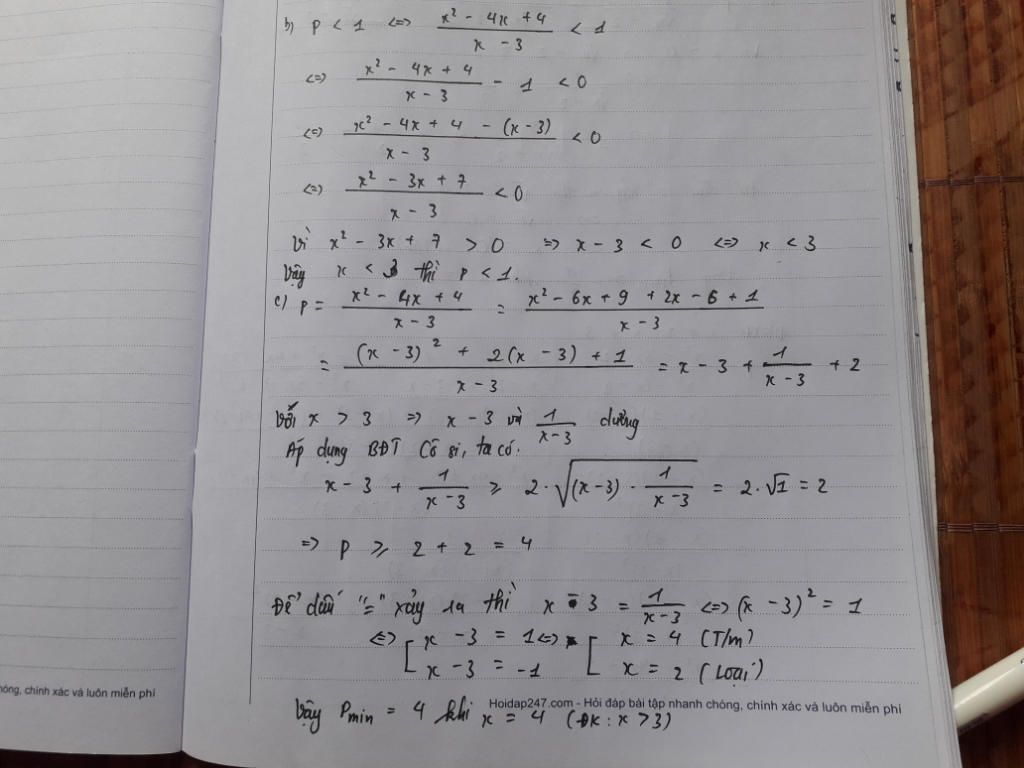 b) P < 1 <=> (x² - 4x + 4)/(x - 3) < 1
<=> (x² - 4x + 4)/(x - 3) - 1 < 0
<=> (x² - 4x + 4 - (x - 3))/(x - 3) < 0
<=> (x² - 3x + 7)/(x - 3) < 0
Vì x² - 3x + 7 > 0 => x - 3 < 0 <=> x < 3
Vậy x < 3 thì P < 1.
c) P = (x² - 4x + 4)/(x - 3) = (x² - 6x + 9 + 2x - 6 + 1)/(x - 3)
= ((x - 3)² + 2(x - 3) + 1)/(x - 3) = x - 3 + 1/(x - 3) + 2
Với x > 3 => x - 3 và 1/(x - 3) dương
Áp dụng BĐT Cô si, ta có:
x - 3 + 1/(x - 3) ⩾ 2.√((x - 3) · 1/(x - 3)) = 2.√1 = 2
=> P ⩾ 2 + 2 = 4
Để dấu "=" xảy ra thì x - 3 = 1/(x - 3) <=> (x - 3)² = 1
<=> [ x - 3 = 1 <=> [ x = 4 (T/m)
x - 3 = -1 x = 2 (Loại)
Vậy Pmin = 4 khi x = 4 (ĐK: x > 3)
hóng, chính xác và luôn miễn phí
Hoidap247.com - Hỏi đáp bài tập nhanh chóng, chính xác và luôn miễn phí